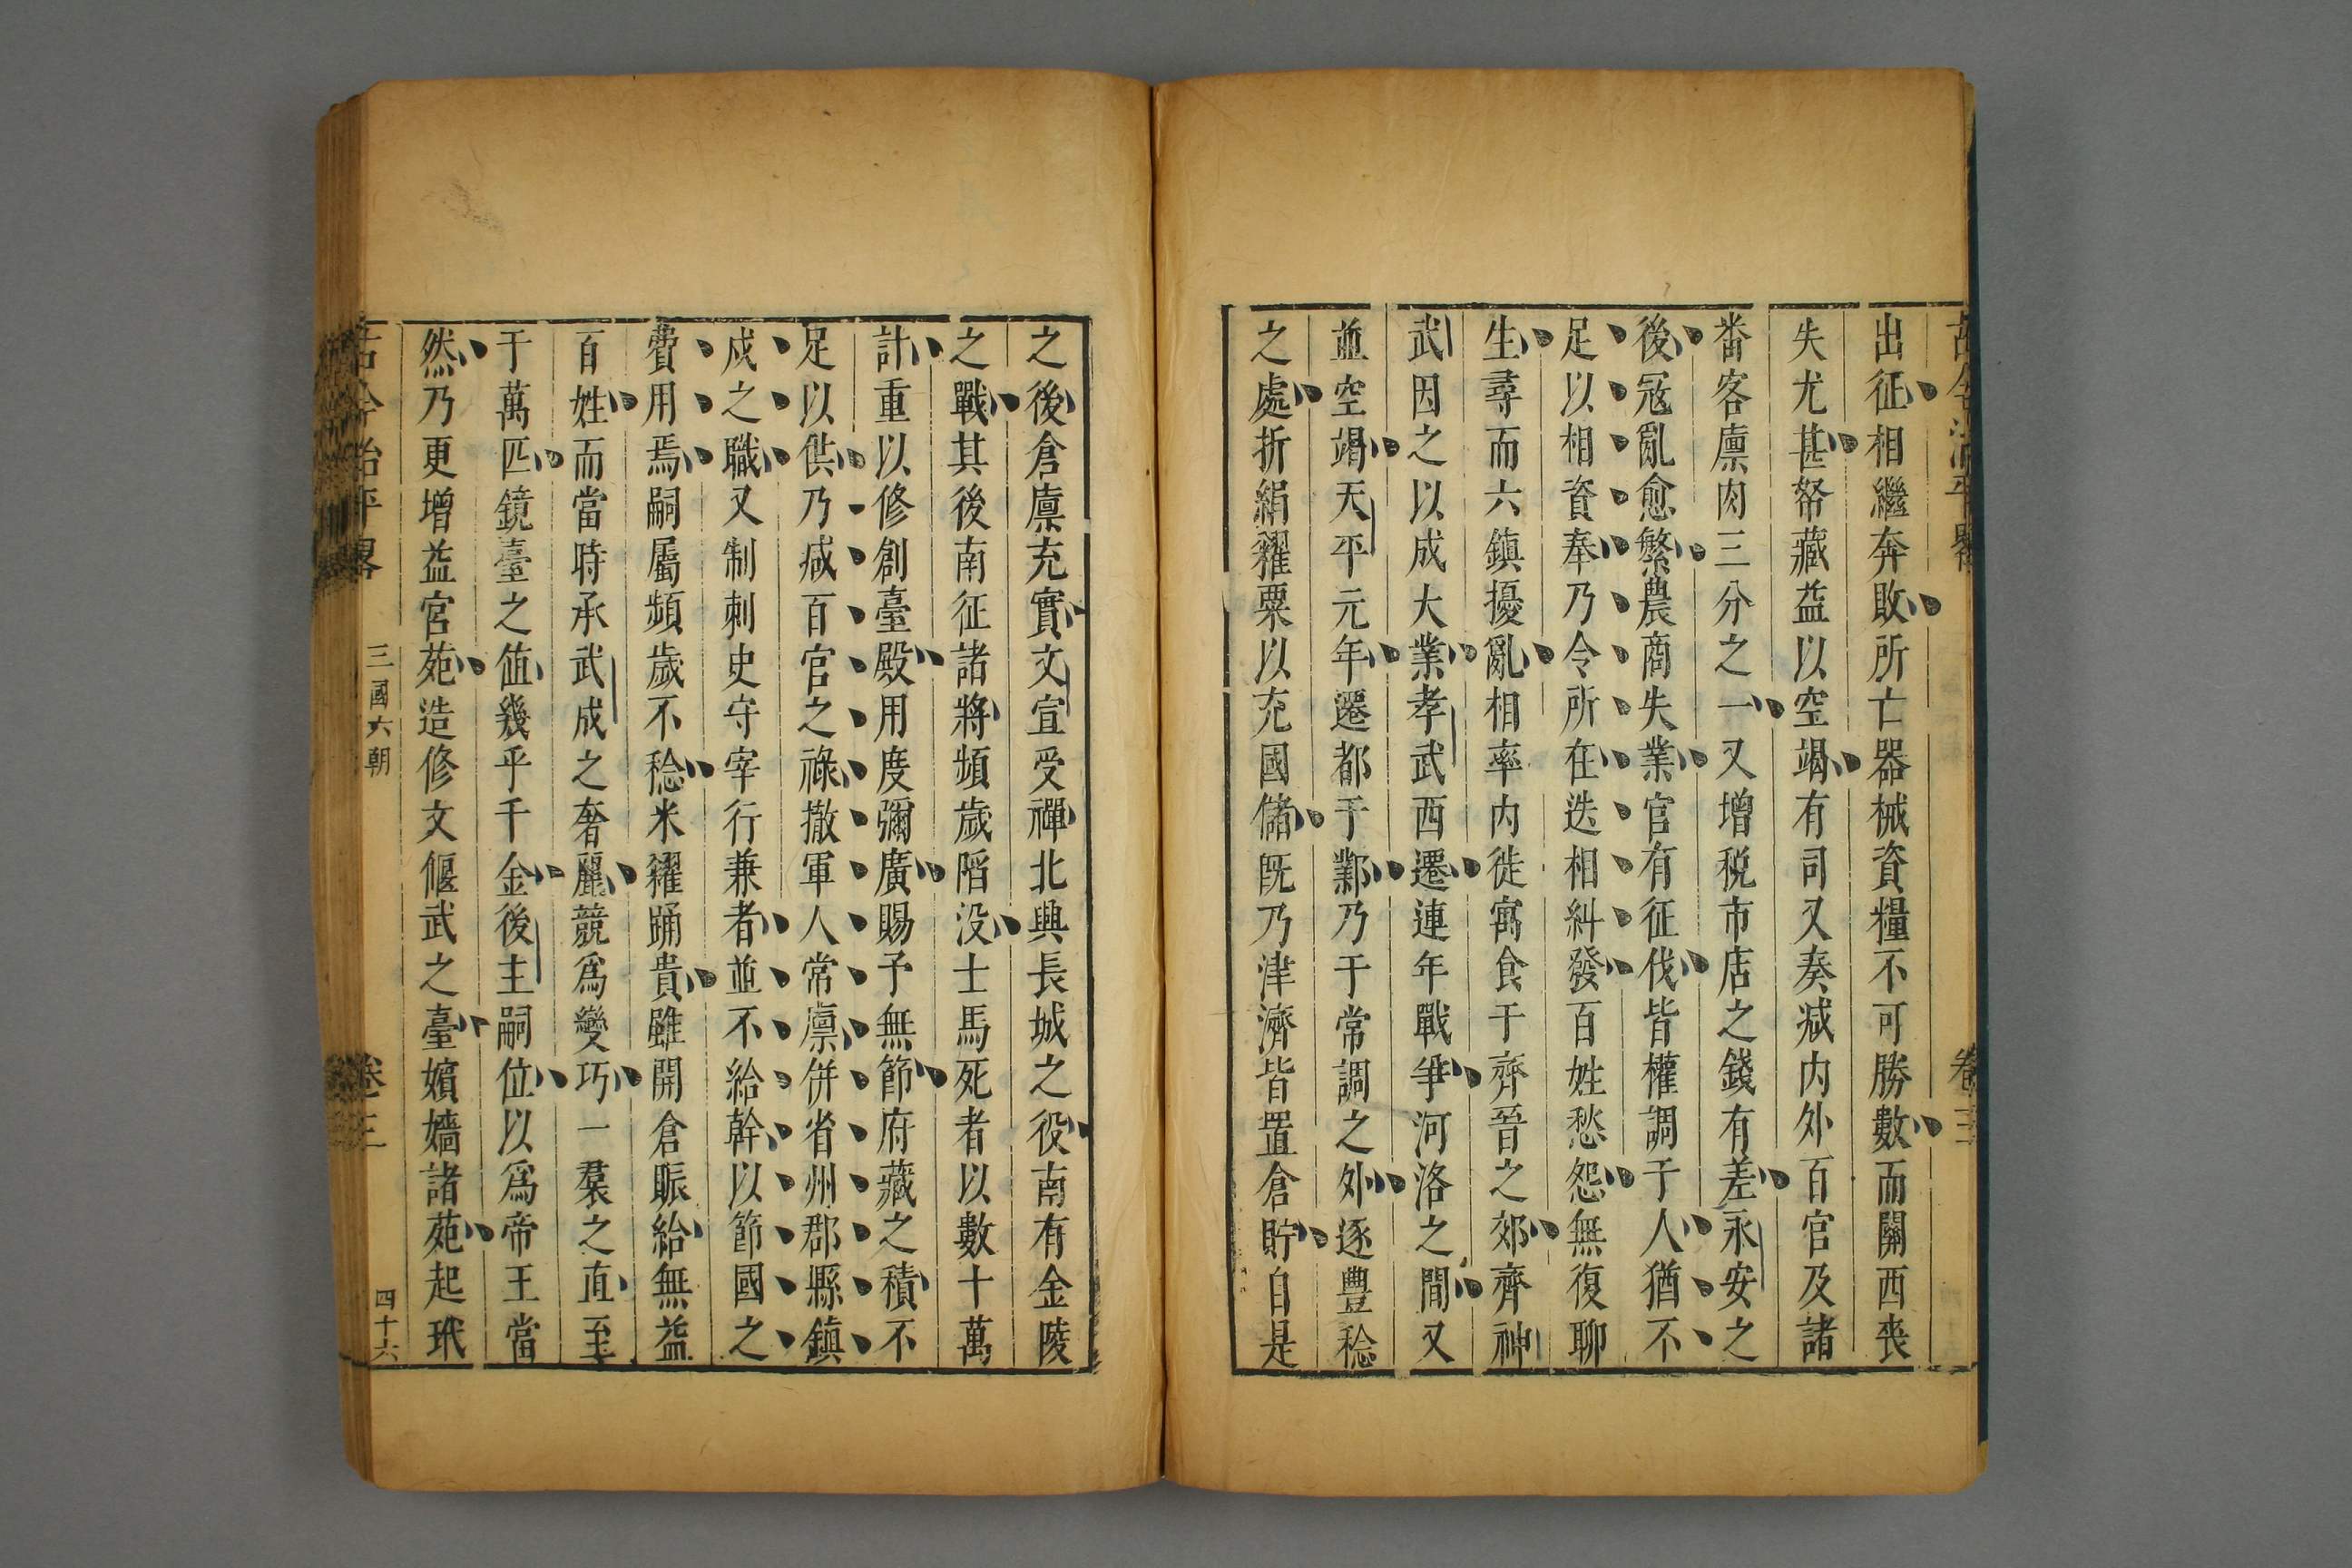 古今治平畧
卷三
出征相繼奔敗所亡器械資糧不可勝數而關西喪
失尤甚帑藏益以空竭有司又奏減内外百官及諸
畨客廪肉三分之一又增税市店之錢有差永安之
後冦亂愈繁農商失業官有征伐皆權調于人猶不
足以相資奉乃令所在迭相糾發百姓愁怨無復聊
生尋而六鎮擾亂相率内徙寓食于齊晉之郊齊神
武因之以成大業孝武西遷連年戰爭河洛之間又
並空竭天平元年遷都于鄴乃于常調之外逐豐稔
之處折絹糴粟以充國儲旣乃津濟皆置倉貯自是
之後倉廪充實文宣受禪北興長城之役南有金陵
之戰其後南征諸將頻歲陷没士馬死者以數十萬
計重以修創臺殿用度彌廣賜予無節府藏之積不
足以供乃減百官之祿撤軍人常廪併省州郡縣鎮
戍之職又制刺史守宰行兼者並不給幹以節國之
費用焉嗣屬頻歲不稔米糴踊貴雖開倉賑給無益
百姓而當時承武成之奢麗競爲變巧一羣之直至
于萬匹鏡臺之値幾乎千金後主嗣位以爲帝王當
然乃更增益宮苑造修文偃武之臺嬪嬙諸苑起玳
古今治平畧
三國六朝
卷三
四十六